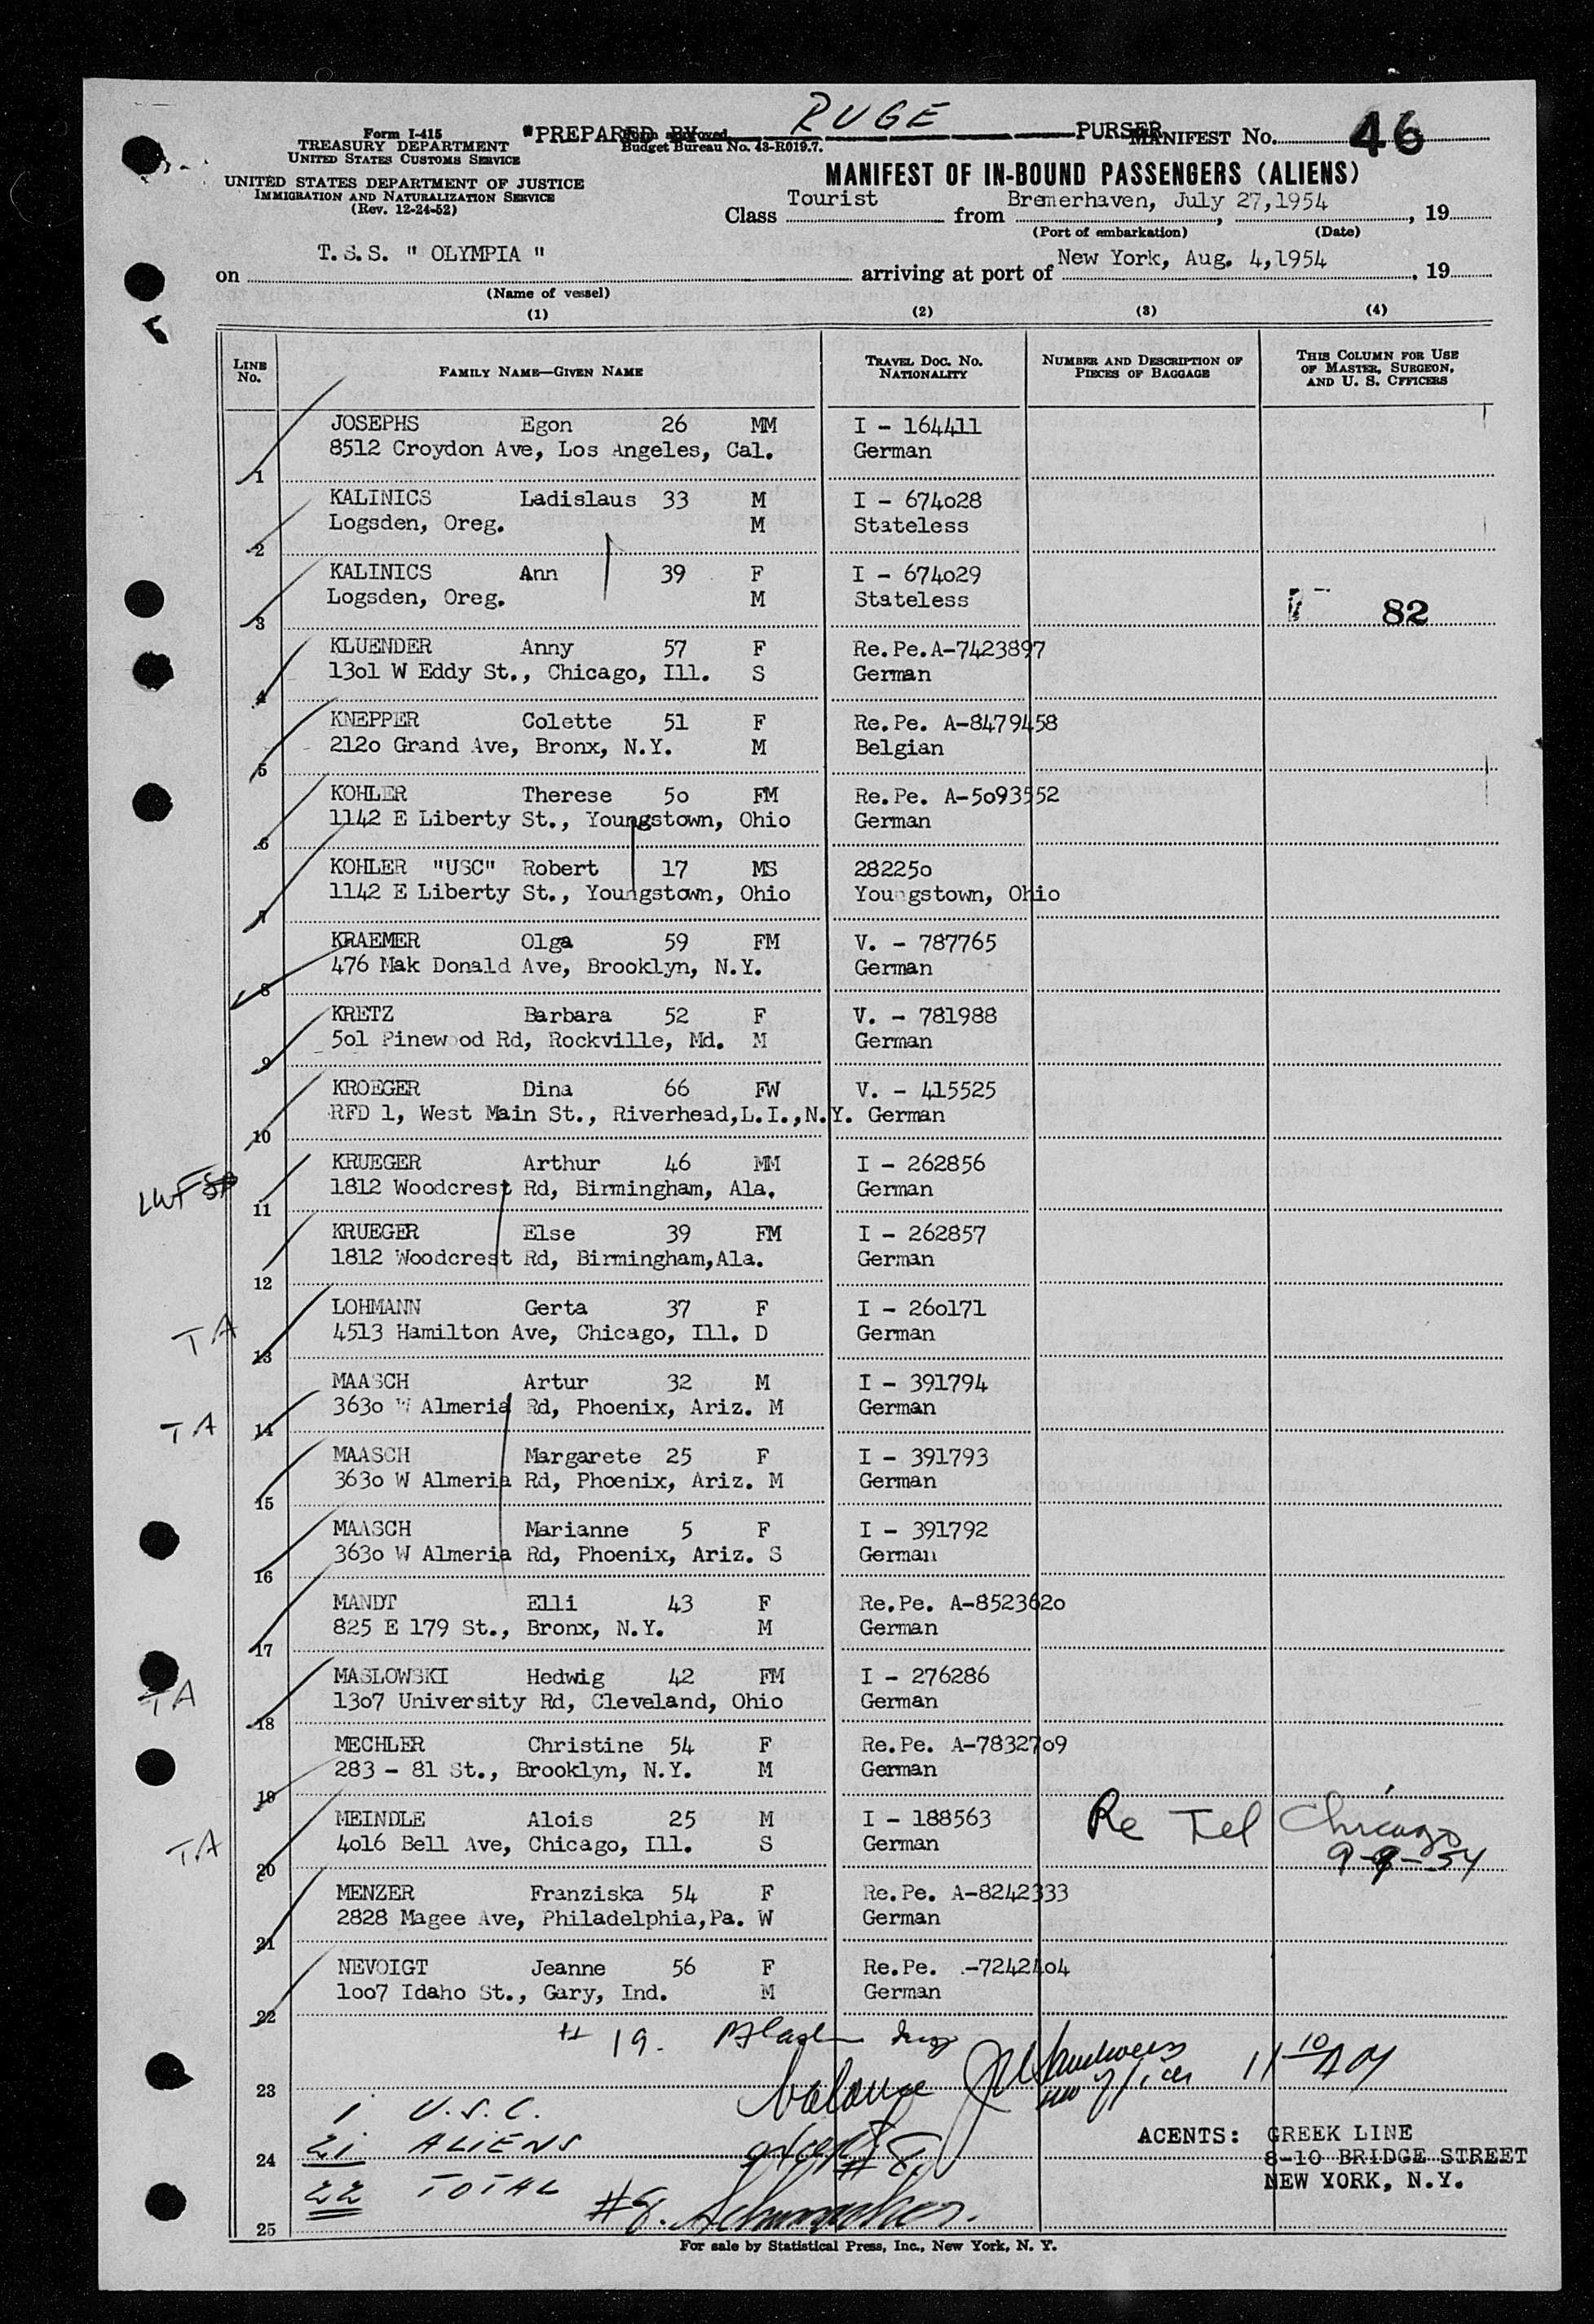 Form I-415
TREASURY DEPARTMENT
UNITED STATES CUSTOMS SERVICE
UNITED STATES DEPARTMENT OF JUSTICE
IMMIGRATION AND NATURALIZATION SERVICE
(Rev. 12-24-52)
"PREPARED BY RUGE PURSER
Form approved
Budget Bureau No. 43-R019.7.
MANIFEST No. 46
MANIFEST OF IN-BOUND PASSENGERS (ALIENS)
Class Tourist from Bremerhaven, July 27,1954, 19
(Port of embarkation) (Date)
on T.S.S. " OLYMPIA " arriving at port of New York, Aug. 4,1954, 19
(Name of vessel)
(1) (2) (3) (4)
LINE No. FAMILY NAME—GIVEN NAME TRAVEL DOC. NO. NATIONALITY NUMBER AND DESCRIPTION OF PIECES OF BAGGAGE THIS COLUMN FOR USE OF MASTER, SURGEON, AND U. S. OFFICERS
JOSEPHS Egon 26 MM I - 164411
8512 Croydon Ave, Los Angeles, Cal. German
1
KALINICS Ladislaus 33 M I - 674o28
Logsden, Oreg. M Stateless
2
KALINICS Ann 39 F I - 674o29
Logsden, Oreg. M Stateless
3 82
KLUENDER Anny 57 F Re.Pe.A-7423897
13o1 W Eddy St., Chicago, Ill. S German
4
KNEPPER Colette 51 F Re.Pe. A-8479458
212o Grand Ave, Bronx, N.Y. M Belgian
5
KOHLER Therese 5o FM Re.Pe. A-5o93552
1142 E Liberty St., Youngstown, Ohio German
6
KOHLER "USC" Robert 17 MS 28225o
1142 E Liberty St., Youngstown, Ohio Youngstown, Ohio
7
KRAEMER Olga 59 FM V. - 787765
476 Mak Donald Ave, Brooklyn, N.Y. German
8
KRETZ Barbara 52 F V. - 781988
5o1 Pinewood Rd, Rockville, Md. M German
9
KROEGER Dina 66 FW V. - 415525
RFD 1, West Main St., Riverhead,L.I.,N.Y. German
10
KRUEGER Arthur 46 MM I - 262856
1812 Woodcrest Rd, Birmingham, Ala. German
11
KRUEGER Else 39 FM I - 262857
1812 Woodcrest Rd, Birmingham,Ala. German
12
LOHMANN Gerta 37 F I - 26o171
TA 4513 Hamilton Ave, Chicago, Ill. D German
13
MAASCH Artur 32 M I - 391794
363o W Almeria Rd, Phoenix, Ariz. M German
TA 14
MAASCH Margarete 25 F I - 391793
363o W Almeria Rd, Phoenix, Ariz. M German
15
MAASCH Marianne 5 F I - 391792
363o W Almeria Rd, Phoenix, Ariz. S German
16
MANDT Elli 43 F Re.Pe. A-852362o
825 E 179 St., Bronx, N.Y. M German
17
MASLOWSKI Hedwig 42 FM I - 276286
TA 13o7 University Rd, Cleveland, Ohio German
18
MECHLER Christine 54 F Re.Pe. A-78327o9
283 - 81 St., Brooklyn, N.Y. M German
19
MEINDLE Alois 25 M I - 188563 Re Tel Chicago
TA 4o16 Bell Ave, Chicago, Ill. S German 9-9-54
20
MENZER Franziska 54 F Re.Pe. A-8242333
2828 Magee Ave, Philadelphia,Pa. W German
21
NEVOIGT Jeanne 56 F Re.Pe. -72424o4
1oo7 Idaho St., Gary, Ind. M German
22
# 19.
23
1 U.S.C.
21 ALIENS
24
22 TOTAL
# 8. Schumacher.
25
AGENTS: GREEK LINE
8-10 BRIDGE STREET
NEW YORK, N.Y.
For sale by Statistical Press, Inc., New York, N. Y.